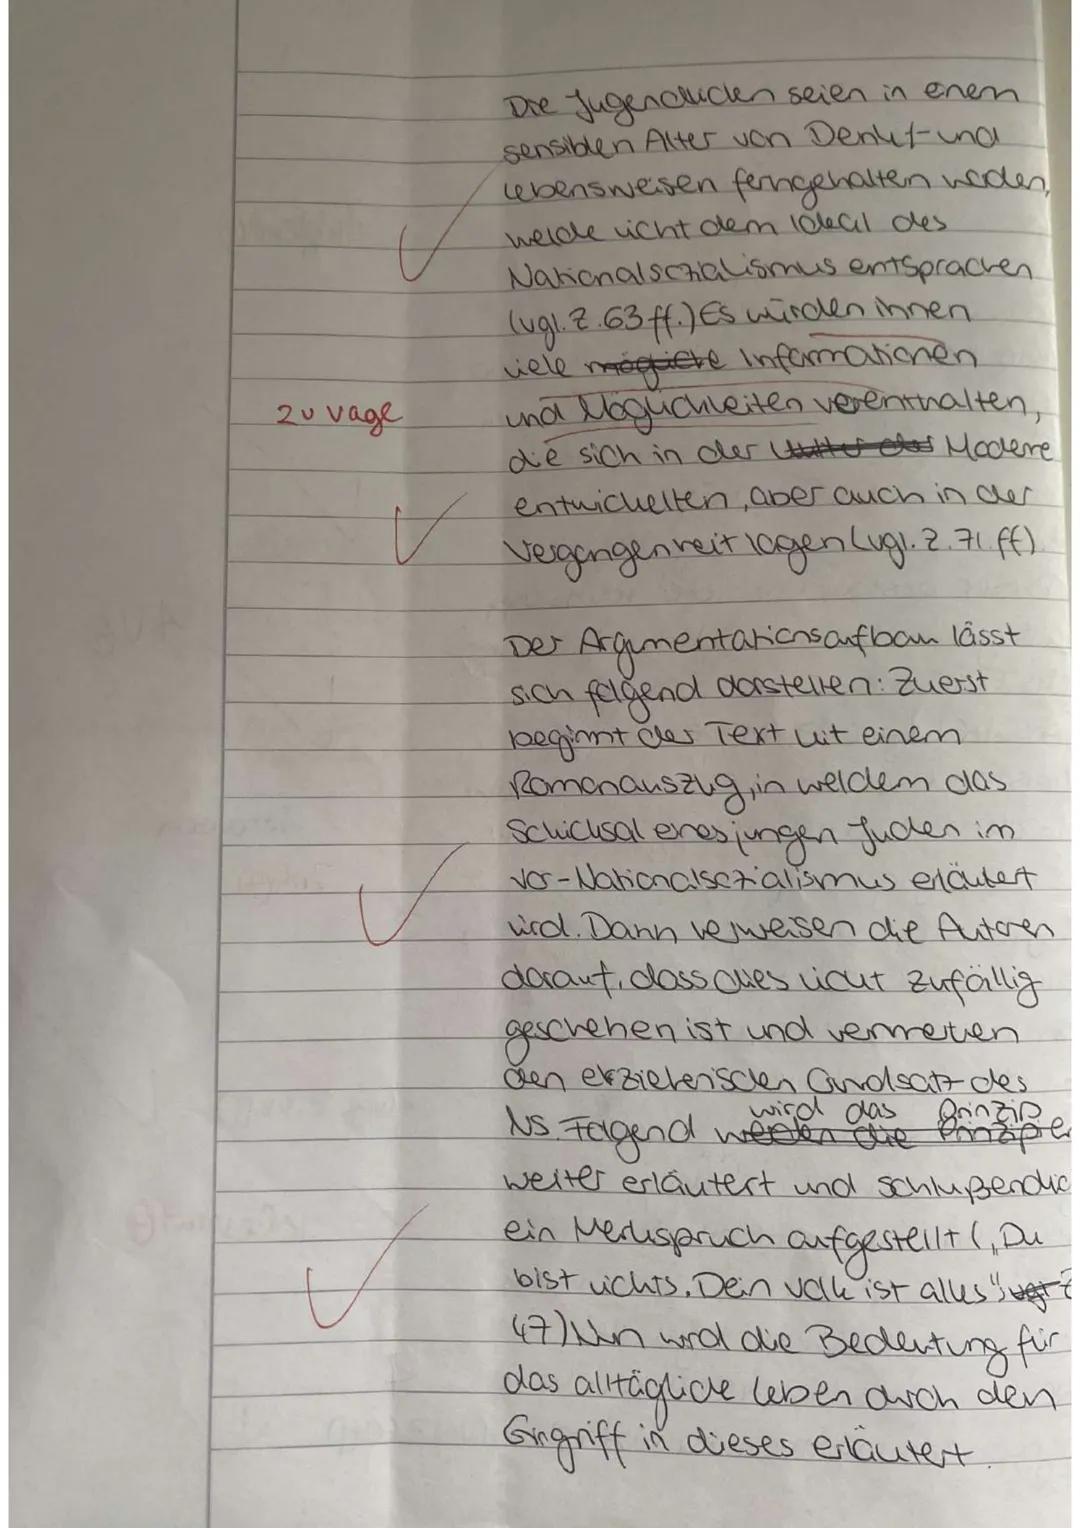 Die Jugendlichen seien in einem
sensiblen Alter von Denk- und
Lebensweisen ferngehalten worden,
welche nicht dem Ideal des
Nationalsozialismus entsprachen
(vgl. Z. 63 ff.) Es würden ihnen
viele mögliche Informationen
zu vage
und Möglichkeiten verenthalten,
die sich in der Moderne
entwickelten, aber auch in der
Vergangenheit lagen (vgl. Z. 71 ff)
Der Argumentationsaufbau lässt
sich folgend darstellen: Zuerst
beginnt der Text mit einem
Romanauszug, in welchem das
Schicksal eines jungen Juden im
Vor-Nationalsozialismus erläutert
wird. Dann verweisen die Autoren
darauf, dass dies nicht zufällig
geschehen ist und vermerken
den erzieherischen Grundsatz des
wird das Prinzip
NS. Folgend werden die Prinzipien
weiter erläutert und schlußendlic
ein Merkspruch aufgestellt („Du
bist nichts. Dein Volk ist alles", vgl. Z
47) Nun wird die Bedeutung für
das alltägliche Leben durch den
Eingriff in dieses erläutert.